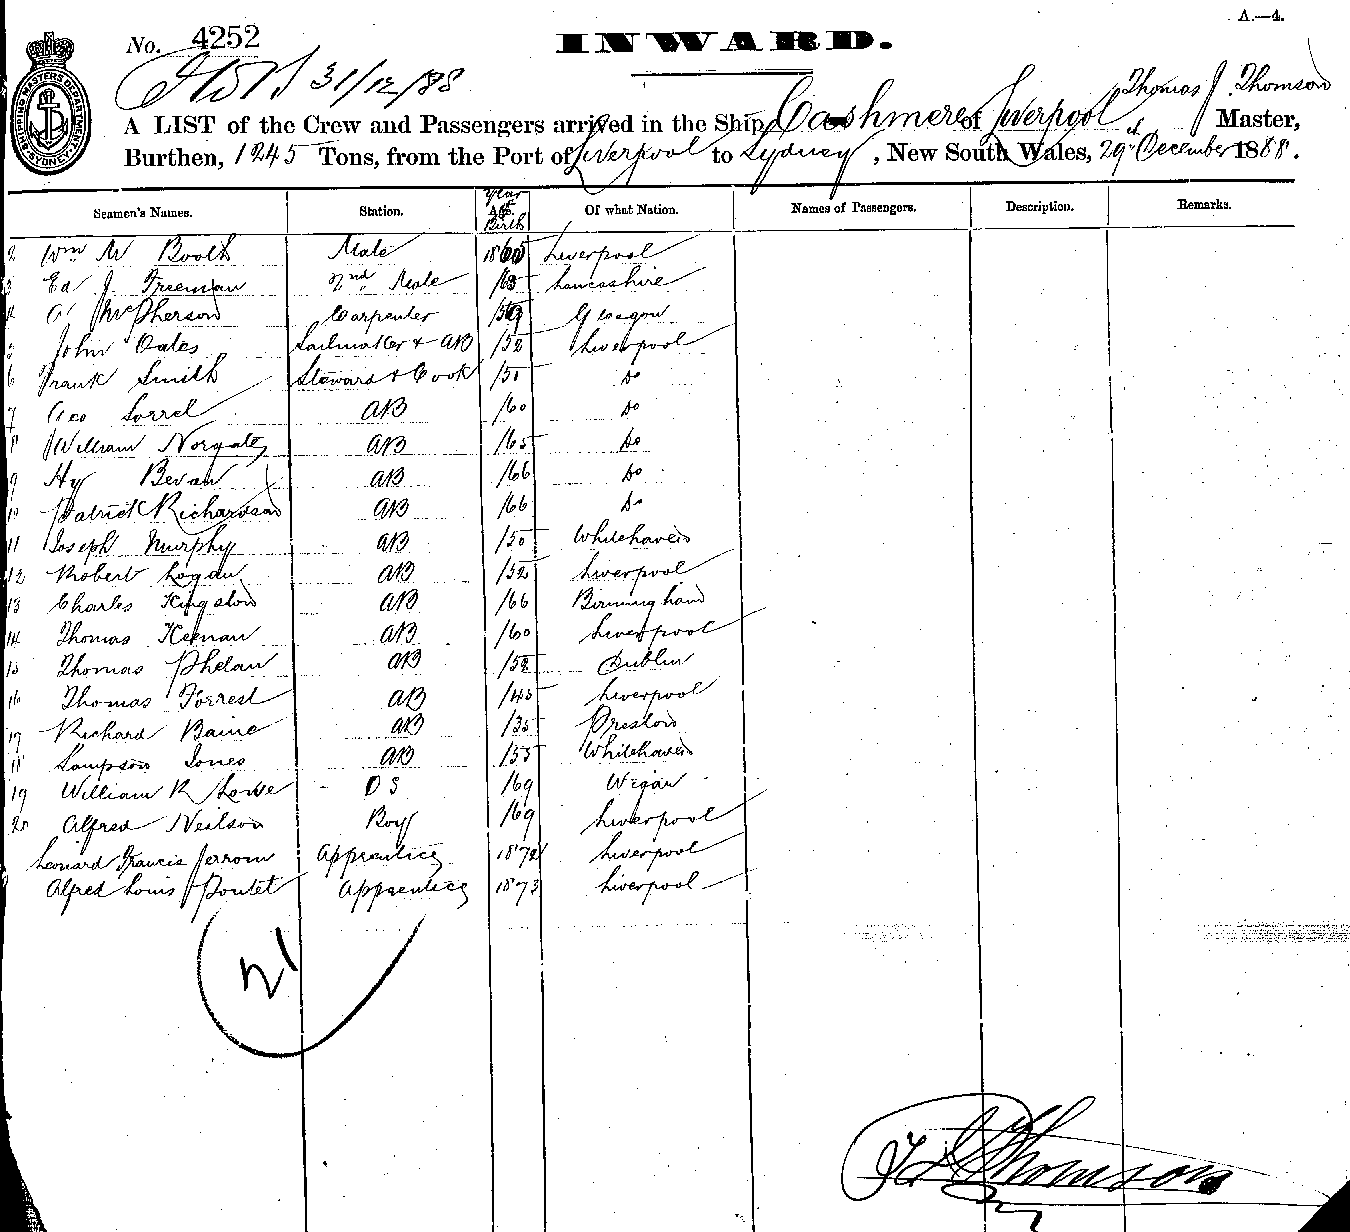 A.—4.
No. 4252
INWARD.
31/12/88
SHIPPING MASTERS DEPARTMENT SYDNEY
Thomas J. Thomson
A LIST of the Crew and Passengers arrived in the Ship Cashmere of Liverpool Master,
Burthen, 1245 Tons, from the Port of Liverpool to Sydney, New South Wales, 29th December 1888.
Seamen's Names. Station. Year of Birth Of what Nation. Names of Passengers. Description. Remarks.
2 Wm W Booth Mate Liverpool
3 Ed J. Freeman 2nd Mate /63 Lancashire
4 McPherson Carpenter /59 Glasgow
5 John Oates Sailmaker & AB /52 Liverpool
6 Frank Smith Steward & Cook /51 Do
7 Geo Sorrel AB /60 Do
8 William Norgate AB /65 Do
9 Hy Bevan AB /66 Do
10 Patrick Richardson AB /66 Do
11 Joseph Murphy AB /50 Whitehaven
12 Robert Logan AB /52 Liverpool
13 Charles Kingston AB /66 Birmingham
14 Thomas Keenan AB /60 Liverpool
15 Thomas Phelan AB /52 Dublin
16 Thomas Forrest AB /45 Liverpool
17 Richard Baine AB /35 Preston
18 Sampson Jones AB /55 Whitehaven
19 William R Lowe OS /69 Wigan
20 Alfred Neilson Boy /69 Liverpool
Leonard Francis Jerrom Apprentice 1872 Liverpool
Alfred Louis Poutet Apprentice 1873 Liverpool
21
T J Thomson